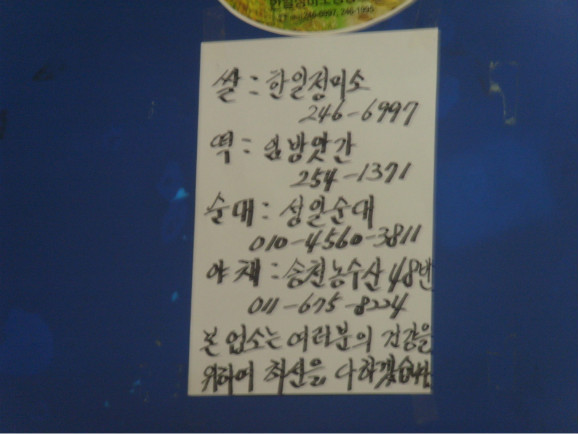 246-6997, 246-1995
쌀: 한일정미소
246-6997
떡: 임방앗간
254-1371
순대: 성일순대
010-4560-3811
야채: 송천농수산 48번
011-675-8224
본 업소는 여러분의 건강을
위하여 최선을 다하겠습니다